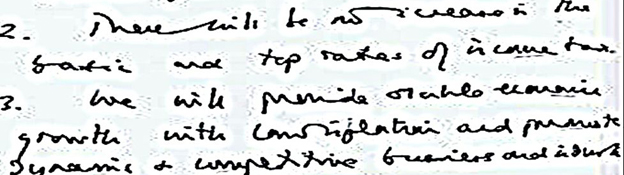 2. There will be no increase in the
basic and top rates of income tax.
3. We will provide stable economic
growth with low inflation and promote
dynamic & competitive business and industr